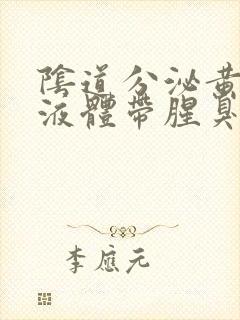 陰道分泌黃
液體帶腥臭
李應元